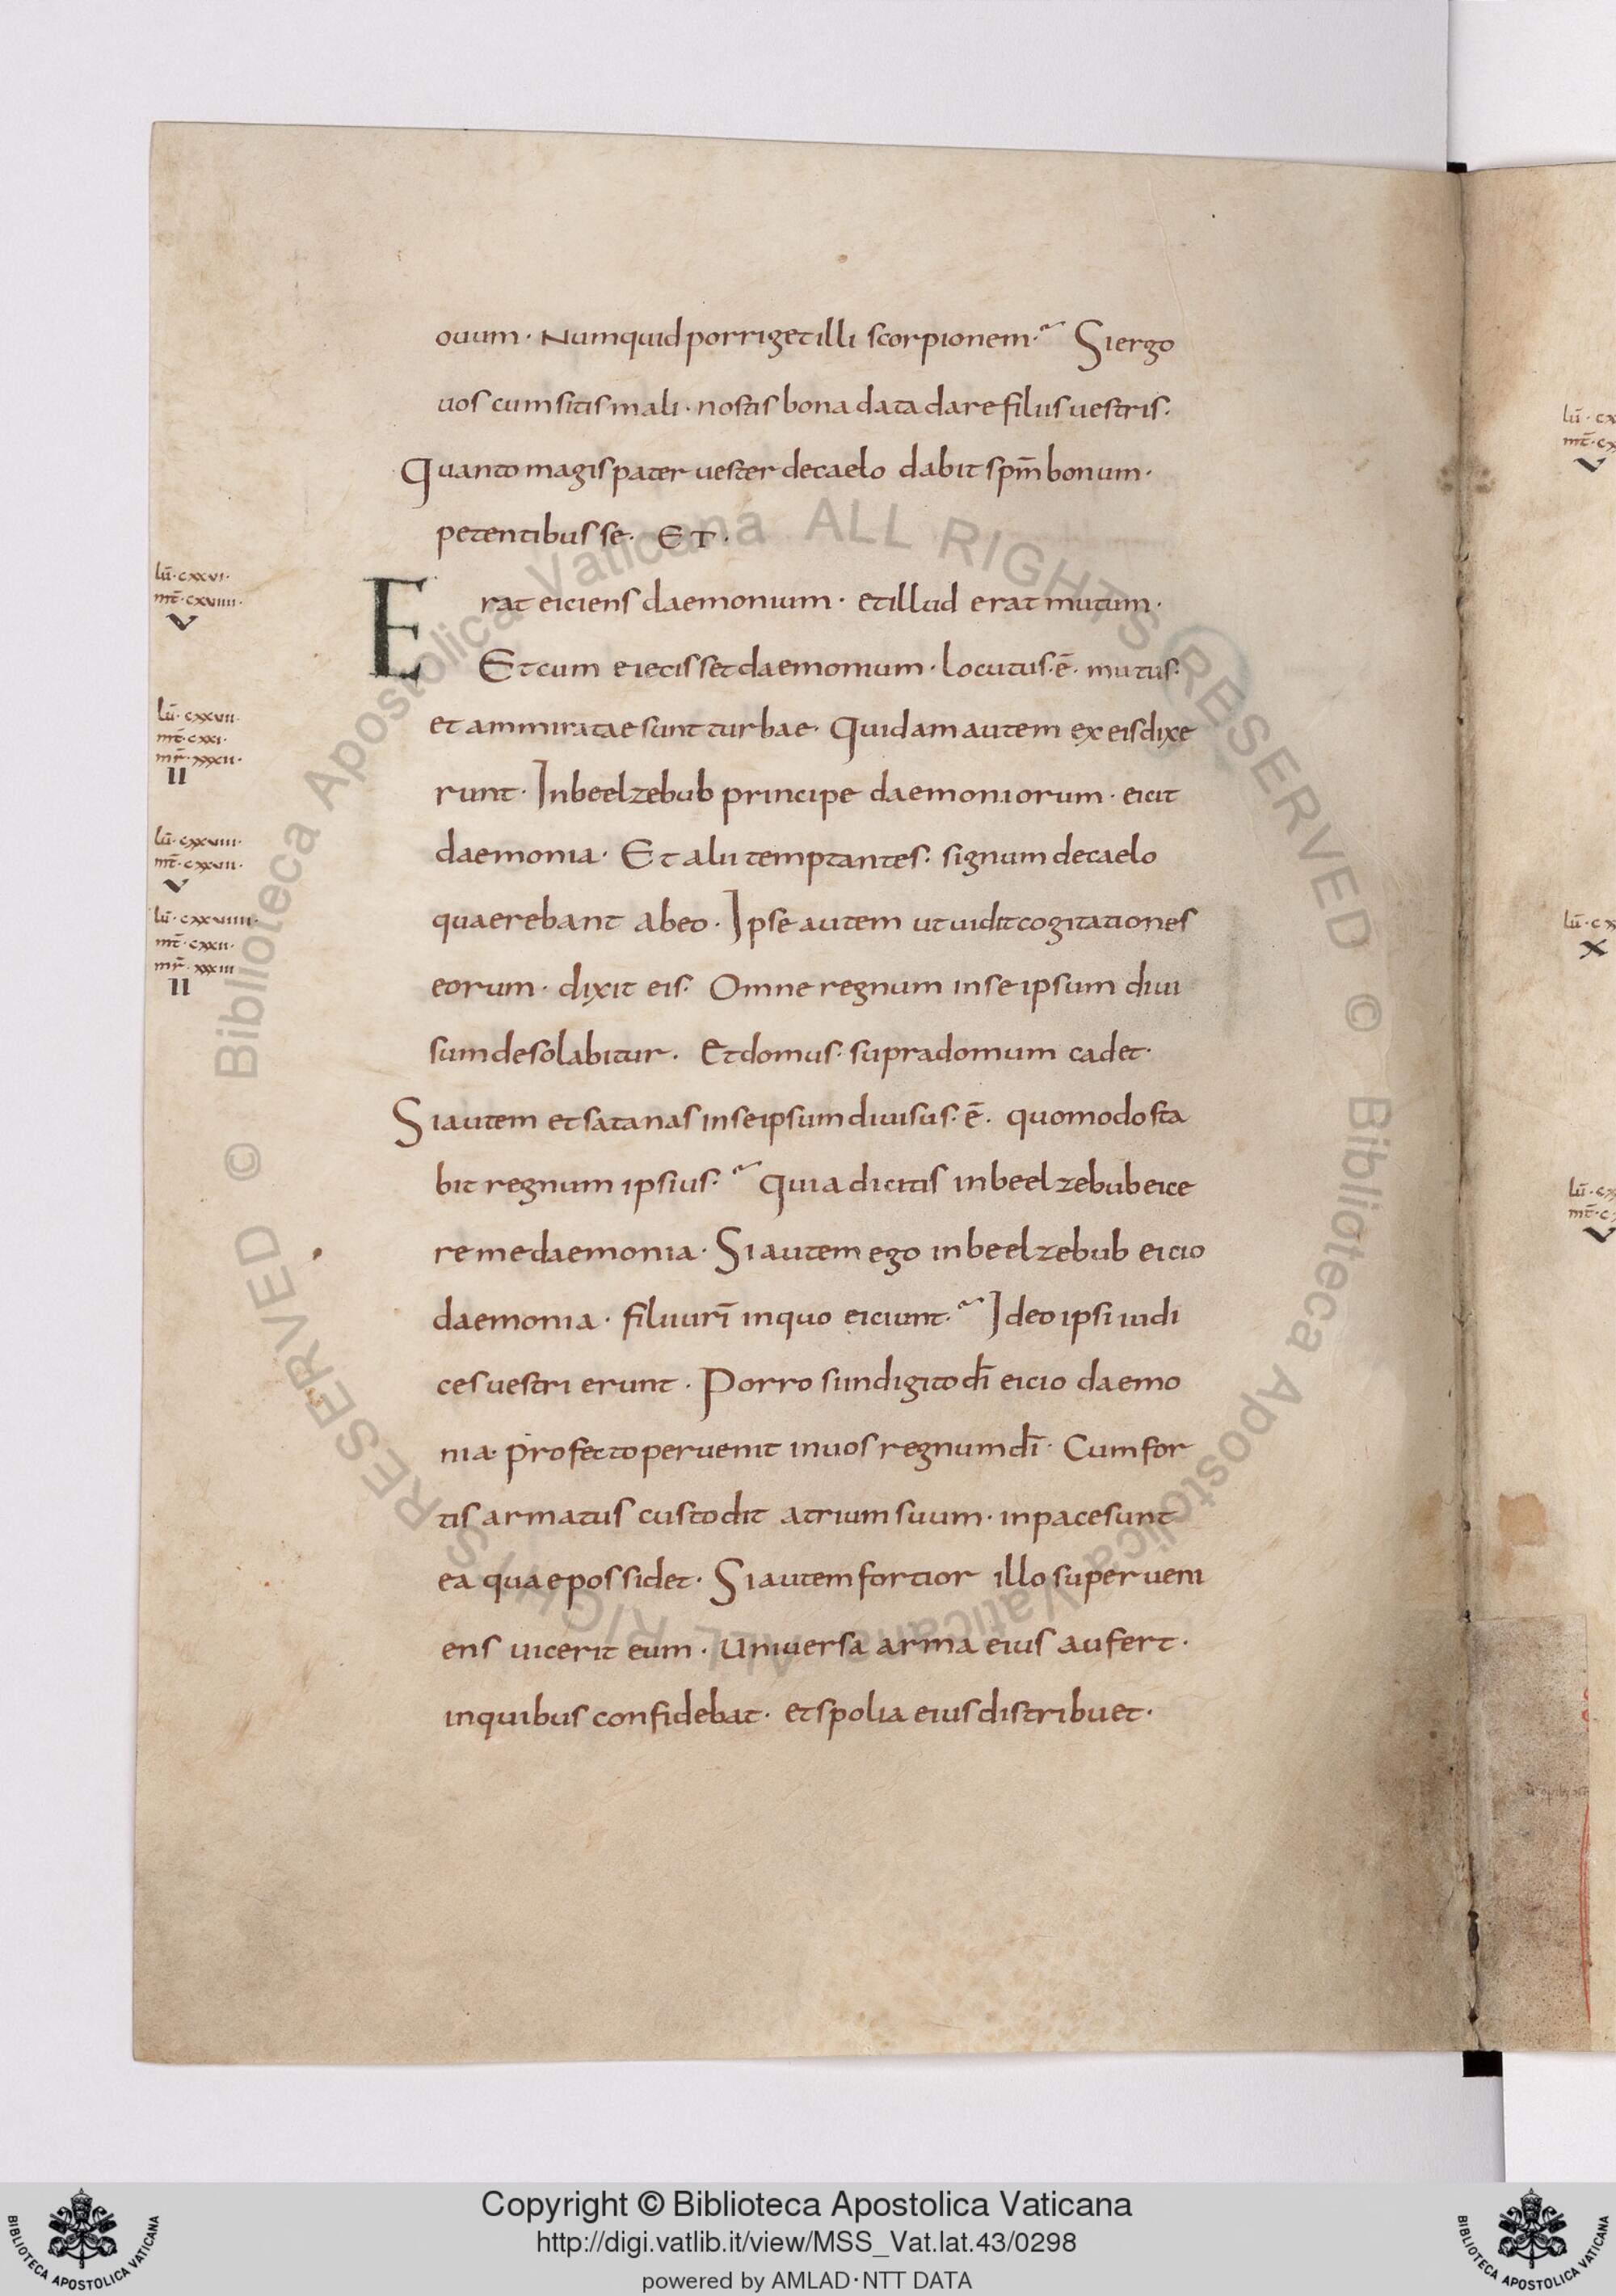 ouum · Numquid porriget illi scorpionem · Si ergo
uos cum sitis mali · nostis bona data dare filiis uestris ·
Quanto magis pater uester decaelo dabit spm̄ bonum ·
petentibus se · ET ·
lū · cxxvi ·
mt̄ · cxviiii ·
v
Erat eiciens daemonium · et illud erat mutum ·
Et cum eiecisset daemonium · locutus · ē · mutus ·
lū · cxxvii ·
mt̄ · cxxi ·
mr̄ · xxxii ·
II
et ammiratae sunt turbae · Quidam autem ex eis dixe
runt · In beelzebub principe daemoniorum · eicit
lū · cxxviii ·
mt̄ · cxxvii ·
v
daemonia · Et alii temptantes · signum decaelo
lū · cxxviiii ·
mt̄ · cxxii ·
mr̄ · xxxiii
II
quaerebant abeo · Ipse autem ut uidit cogitationes
eorum · dixit eis · Omne regnum in se ipsum diui
sum desolabitur · Et domus · supra domum cadet ·
Si autem et satanas in se ipsum diuisus · ē · quomodo sta
bit regnum ipsius · Quia dicitis in beelzebub eice
re me daemonia · Si autem ego in beelzebub eicio
daemonia · filii urī in quo eiciunt · Ideo ipsi iudi
ces uestri erunt · Porro si in digito dī eicio daemo
nia · profecto peruenit in uos regnum dī · Cum for
tis armatus custodit atrium suum · in pace sunt
ea quae possidet · Si autem fortior illo superueni
ens uicerit eum · Uniuersa arma eius aufert ·
in quibus confidebat · et spolia eius distribuet ·
© Biblioteca Apostolica Vaticana ALL RIGHTS RESERVED © Biblioteca Apostolica Vaticana ALL RIGHTS RESERVED
BIBLIOTECA APOSTOLICA VATICANA
Copyright © Biblioteca Apostolica Vaticana
http://digi.vatlib.it/view/MSS_Vat.lat.43/0298
powered by AMLAD·NTT DATA
BIBLIOTECA APOSTOLICA VATICANA